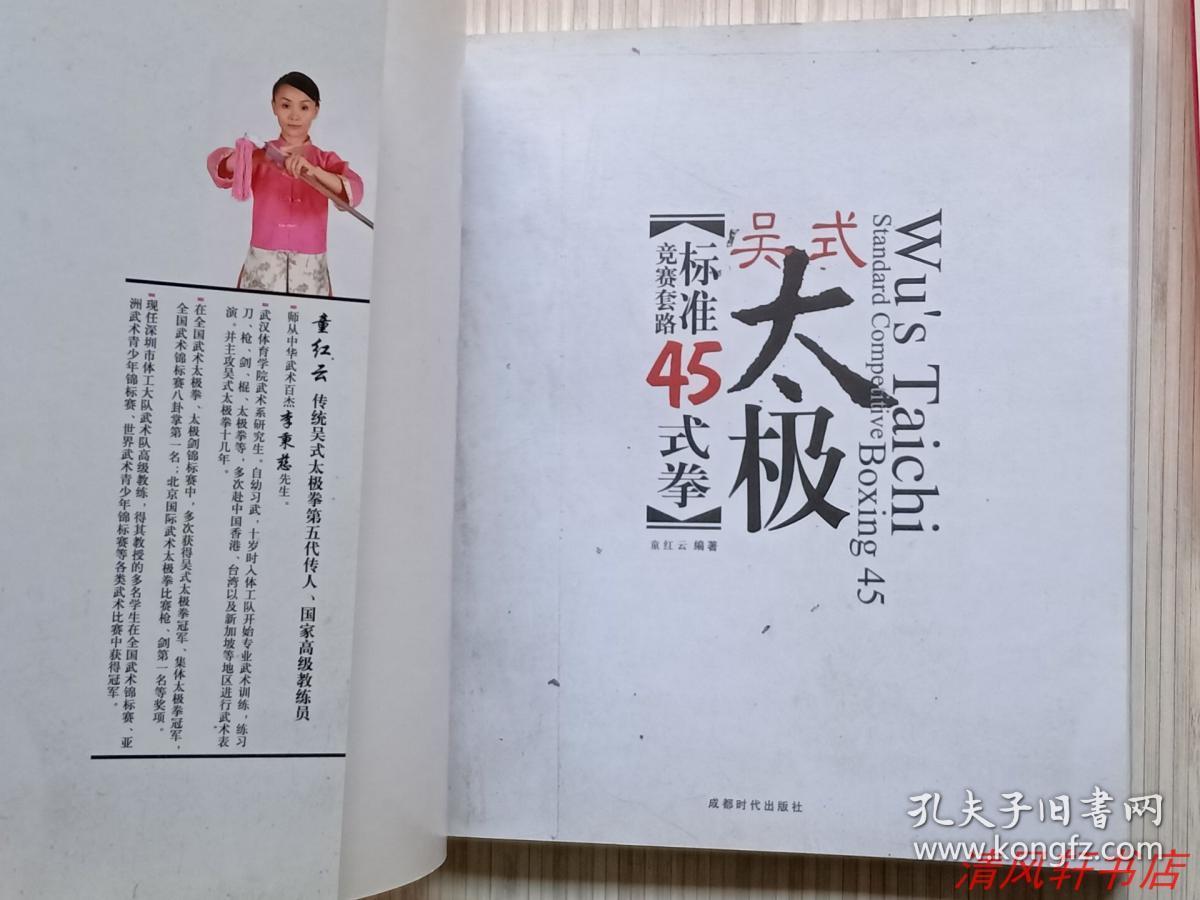 童红云 传统吴式太极拳第五代传人、国家高级教练员
师从中华武术百杰李秉慈先生。
武汉体育学院武术系研究生。自幼习武，十岁时入体工队开始专业武术训练，练习
刀、枪、剑、棍、太极拳等，多次赴中国香港、台湾以及新加坡等地区进行武术表
演。并主攻吴式太极拳十几年。
在全国武术太极拳、太极剑锦标赛中，多次获得吴式太极拳冠军、集体太极拳冠军，
全国武术锦标赛八卦掌第一名；北京国际武术太极拳比赛枪、剑第一名等奖项。
现任深圳市体工大队武术队高级教练，得其教授的多名学生在全国武术锦标赛、亚
洲武术青少年锦标赛、世界武术青少年锦标赛等各类武术比赛中获得冠军。
Wu's Taichi
Standard Competitive Boxing 45
吴式
太极
【标准45式拳】
竞赛套路
童红云 编著
成都时代出版社
孔夫子旧书网
www.kongfz.com
清风轩书店